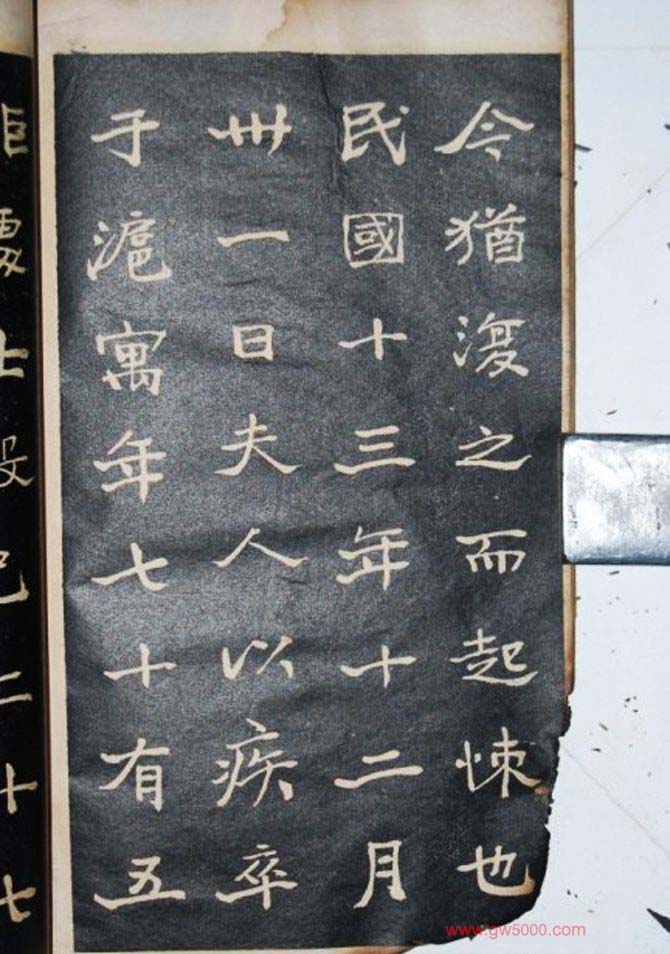 今猶復之而起悚也
民國十三年十二月
卅一日夫人以疾卒
于滬寓年七十有五
二十七
www.gw5000.com